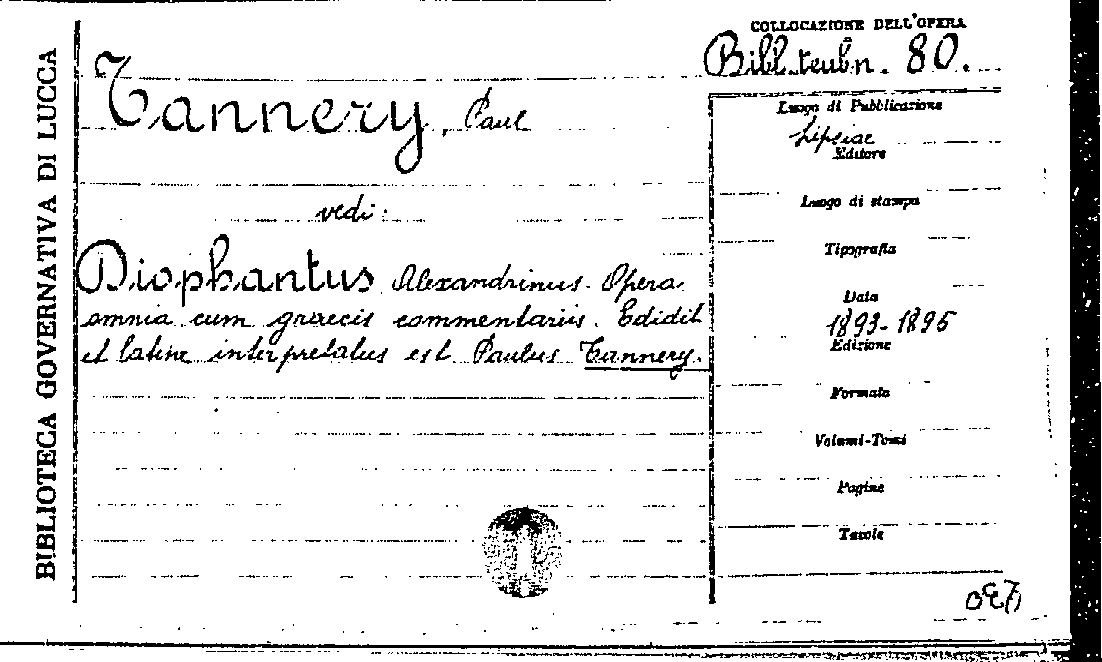 BIBLIOTECA GOVERNATIVA DI LUCCA
COLLOCAZIONE DELL'OPERA
Bibl. teubn. 80.
Tannery, Paul
vedi:
Diophantus Alexandrinus. Opera
omnia cum graecis commentariis. Edidit
et latine interpretatus est Paulus Tannery.
Luogo di Pubblicazione
Lipsiae
Editore
Luogo di stampa
Tipografia
Data
1893-1895
Edizione
Formato
Volumi-Tomi
Pagine
Tavole